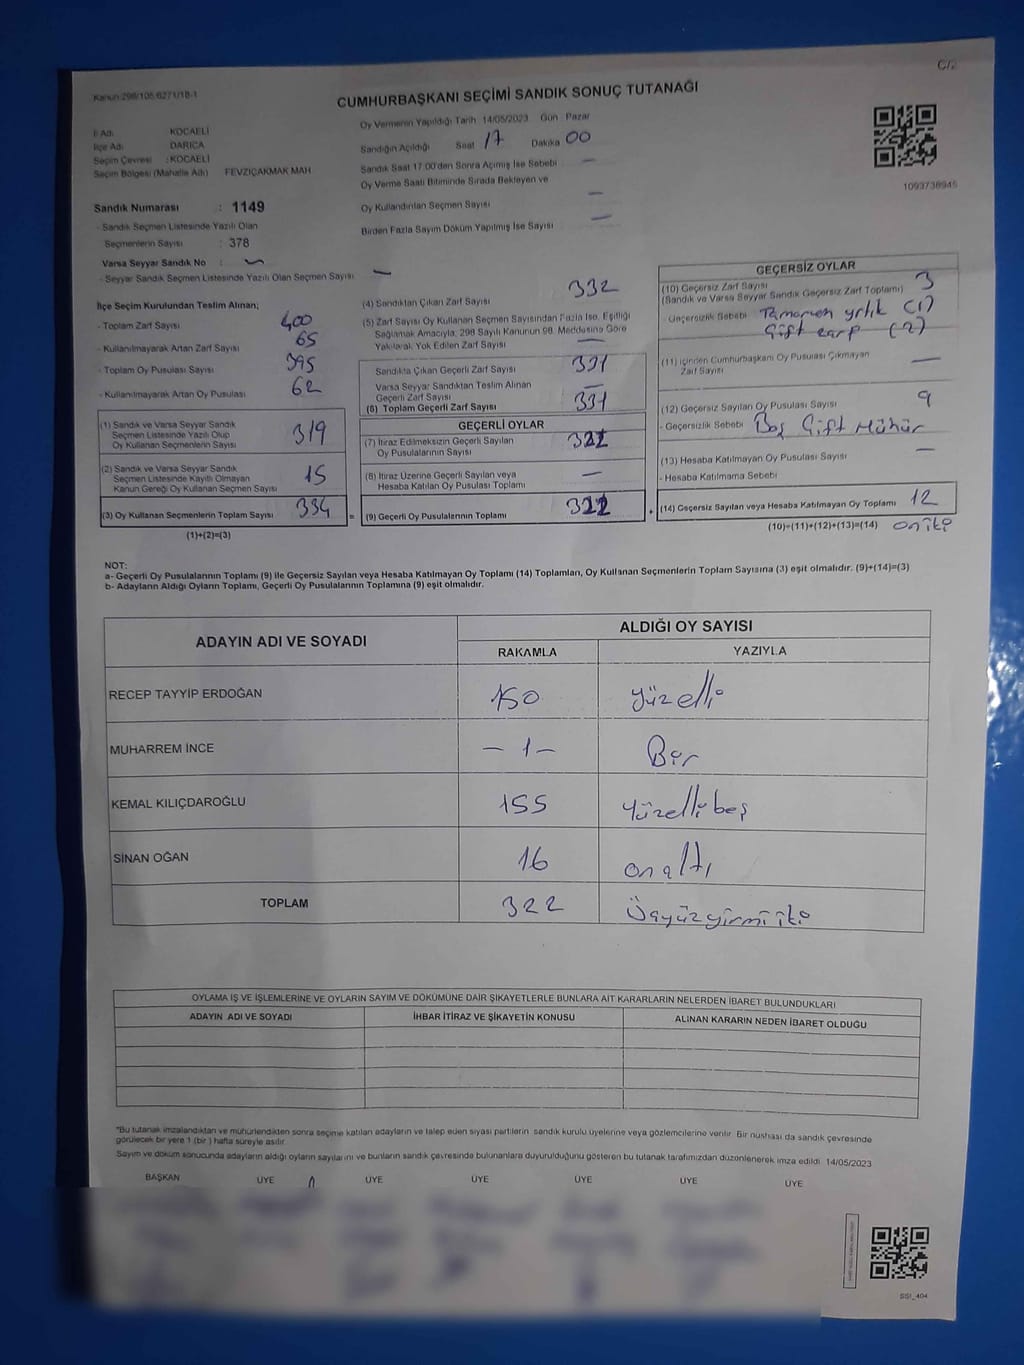 C/2
Kanun:298/105;6271/18-1
CUMHURBAŞKANI SEÇİMİ SANDIK SONUÇ TUTANAĞI
İl Adı KOCAELİ
İlçe Adı DARICA
Seçim Çevresi : KOCAELİ
Seçim Bölgesi (Mahalle Adı) FEVZİÇAKMAK MAH
Sandık Numarası : 1149
- Sandık Seçmen Listesinde Yazılı Olan
Seçmenlerin Sayısı : 378
Varsa Seyyar Sandık No : —
- Seyyar Sandık Seçmen Listesinde Yazılı Olan Seçmen Sayısı —
Oy Vermenin Yapıldığı Tarih 14/05/2023 Gün Pazar
Sandığın Açıldığı Saat 17 Dakika 00
Sandık Saat 17:00'den Sonra Açılmış İse Sebebi —
Oy Verme Saati Bitiminde Sırada Bekleyen ve
Oy Kullandırılan Seçmen Sayısı —
Birden Fazla Sayım Döküm Yapılmış İse Sayısı —
1093738945
İlçe Seçim Kurulundan Teslim Alınan;
- Toplam Zarf Sayısı 400
- Kullanılmayarak Artan Zarf Sayısı 65
- Toplam Oy Pusulası Sayısı 395
- Kullanılmayarak Artan Oy Pusulası 62
(1) Sandık ve Varsa Seyyar Sandık
Seçmen Listesinde Yazılı Olup
Oy Kullanan Seçmenlerin Sayısı 319
(2) Sandık ve Varsa Seyyar Sandık
Seçmen Listesinde Kayıtlı Olmayan
Kanun Gereği Oy Kullanan Seçmen Sayısı 15
(3) Oy Kullanan Seçmenlerin Toplam Sayısı 334 =
(1)+(2)=(3)
(4) Sandıktan Çıkan Zarf Sayısı 332
(5) Zarf Sayısı Oy Kullanan Seçmen Sayısından Fazla İse, Eşitliği
Sağlamak Amacıyla, 298 Sayılı Kanunun 98. Maddesine Göre
Yakılarak Yok Edilen Zarf Sayısı —
Sandıkta Çıkan Geçerli Zarf Sayısı 331
Varsa Seyyar Sandıktan Teslim Alınan
Geçerli Zarf Sayısı —
(6) Toplam Geçerli Zarf Sayısı 331
GEÇERLİ OYLAR
(7) İtiraz Edilmeksizin Geçerli Sayılan
Oy Pusulalarının Sayısı 322
(8) İtiraz Üzerine Geçerli Sayılan veya
Hesaba Katılan Oy Pusulası Toplamı —
(9) Geçerli Oy Pusulalarının Toplamı 322
GEÇERSİZ OYLAR
(10) Geçersiz Zarf Sayısı
(Sandık ve Varsa Seyyar Sandık Geçersiz Zarf Toplamı) 3
- Geçersizlik Sebebi Tamamen yrtık (1)
Çift zarp (2)
(11) İçinden Cumhurbaşkanı Oy Pusulası Çıkmayan
Zarf Sayısı —
(12) Geçersiz Sayılan Oy Pusulası Sayısı 9
- Geçersizlik Sebebi Boş Çift Mühür
(13) Hesaba Katılmayan Oy Pusulası Sayısı —
- Hesaba Katılmama Sebebi
(14) Geçersiz Sayılan veya Hesaba Katılmayan Oy Toplamı 12
(10)+(11)+(12)+(13)=(14) oniki
NOT:
a- Geçerli Oy Pusulalarının Toplamı (9) ile Geçersiz Sayılan veya Hesaba Katılmayan Oy Toplamı (14) Toplamları, Oy Kullanan Seçmenlerin Toplam Sayısına (3) eşit olmalıdır. (9)+(14)=(3)
b- Adayların Aldığı Oyların Toplamı, Geçerli Oy Pusulalarının Toplamına (9) eşit olmalıdır.
ADAYIN ADI VE SOYADI ALDIĞI OY SAYISI
RAKAMLA YAZIYLA
RECEP TAYYİP ERDOĞAN 150 yüzelli
MUHARREM İNCE — 1 — Bir
KEMAL KILIÇDAROĞLU 155 yüzellibeş
SİNAN OĞAN 16 onaltı
TOPLAM 322 Üçyüzyirmiiki
OYLAMA İŞ VE İŞLEMLERİNE VE OYLARIN SAYIM VE DÖKÜMÜNE DAİR ŞİKAYETLERLE BUNLARA AİT KARARLARIN NELERDEN İBARET BULUNDUKLARI
ADAYIN ADI VE SOYADI İHBAR İTİRAZ VE ŞİKAYETİN KONUSU ALINAN KARARIN NEDEN İBARET OLDUĞU
*Bu tutanak imzalandıktan ve mühürlendikten sonra seçime katılan adayların ve talep eden siyasi partilerin sandık kurulu üyelerine veya gözlemcilerine verilir. Bir nüshası da sandık çevresinde
görülecek bir yere 1 (bir) hafta süreyle asılır.
Sayım ve döküm sonucunda adayların aldığı oyların sayılarını ve bunların sandık çevresinde bulunanlara duyurulduğunu gösteren bu tutanak tarafımızdan düzenlenerek imza edildi 14/05/2023
BAŞKAN ÜYE ÜYE ÜYE ÜYE ÜYE ÜYE
SSI_404